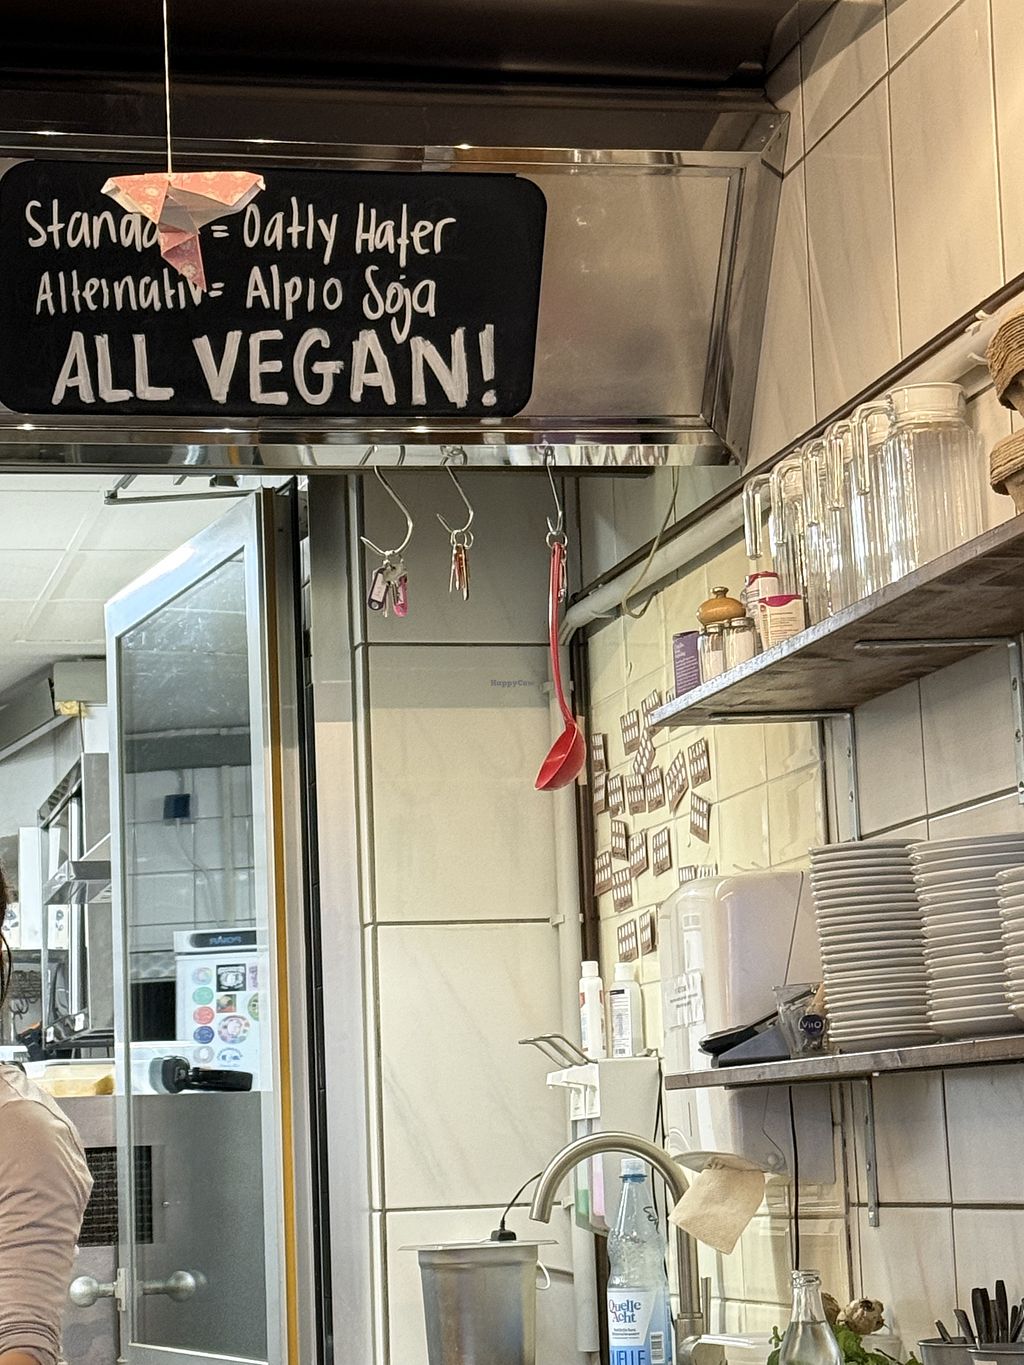 Standa = Oatly Hafer
Alternativ = Alpro Soja
ALL VEGAN!
HappyCow
VitO
Quelle
Acht